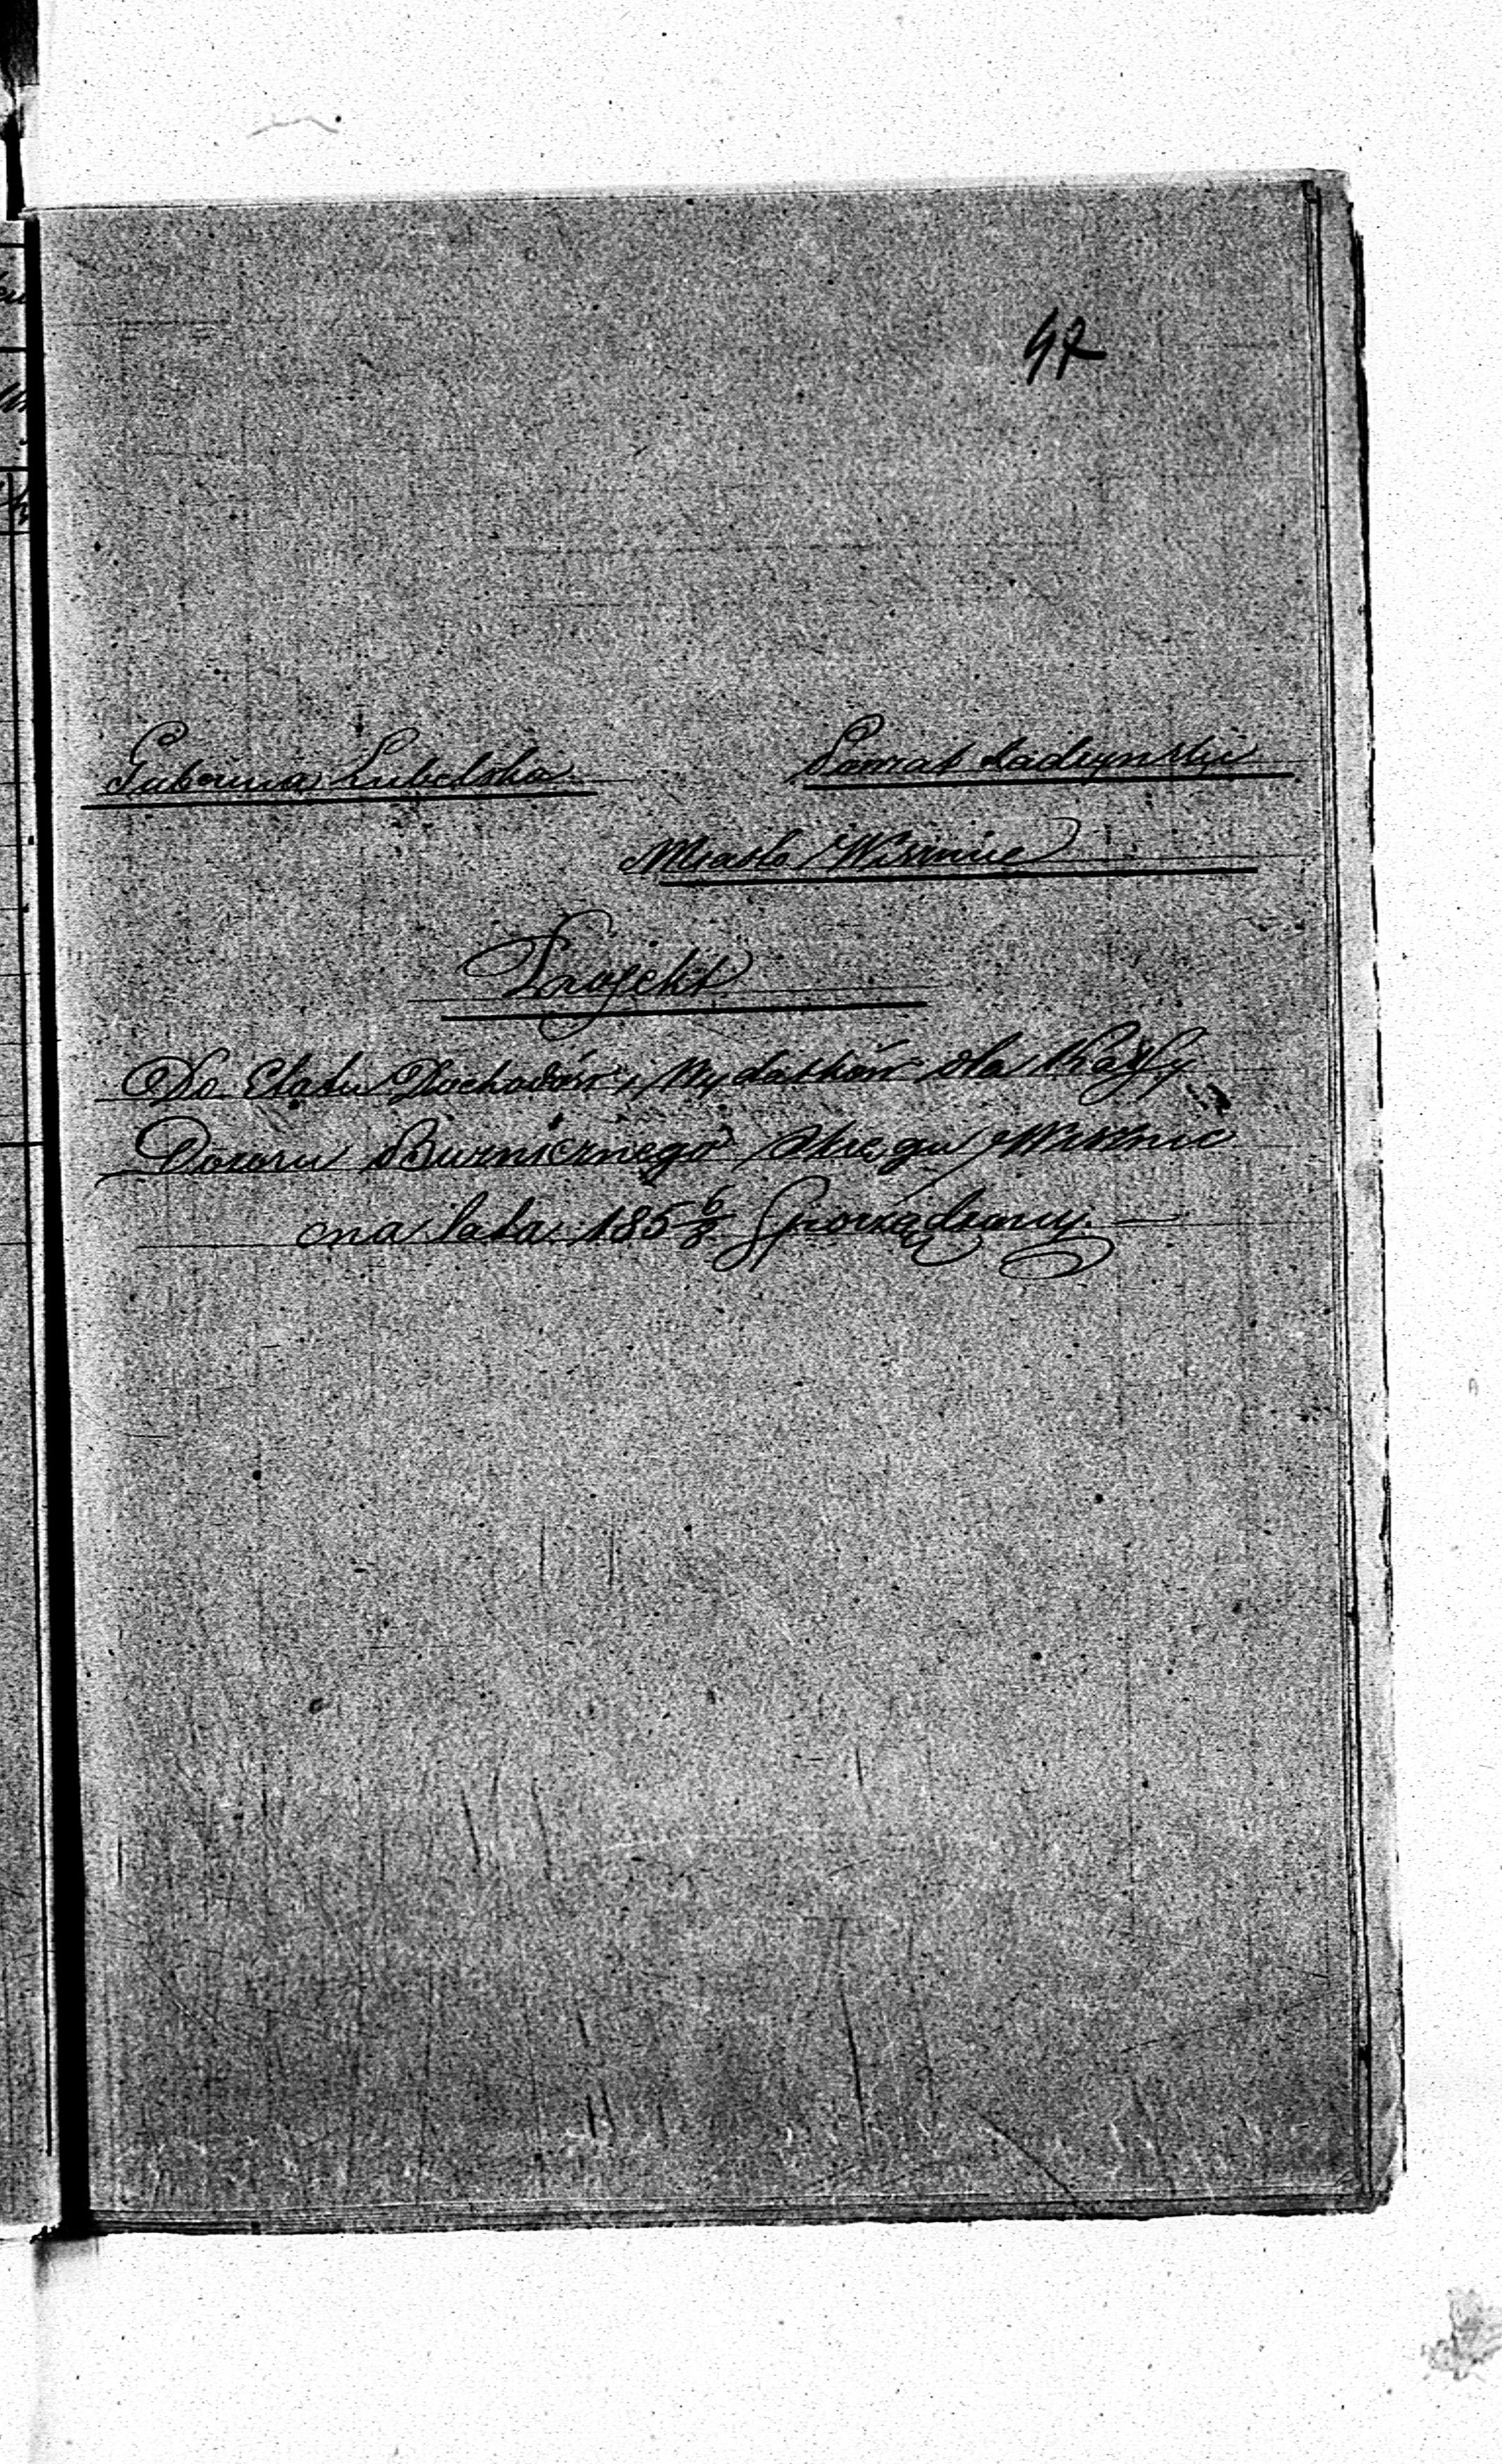 47
Gubernia Lubelska Powiat Radzynski
Miasto Wisznice
Projekt
Do Etatu Dochodów i Wydatków dla Kassy
Dozoru Buznicznego Okręgu Wisznic
na lata 185 6/8 Sporządzony.